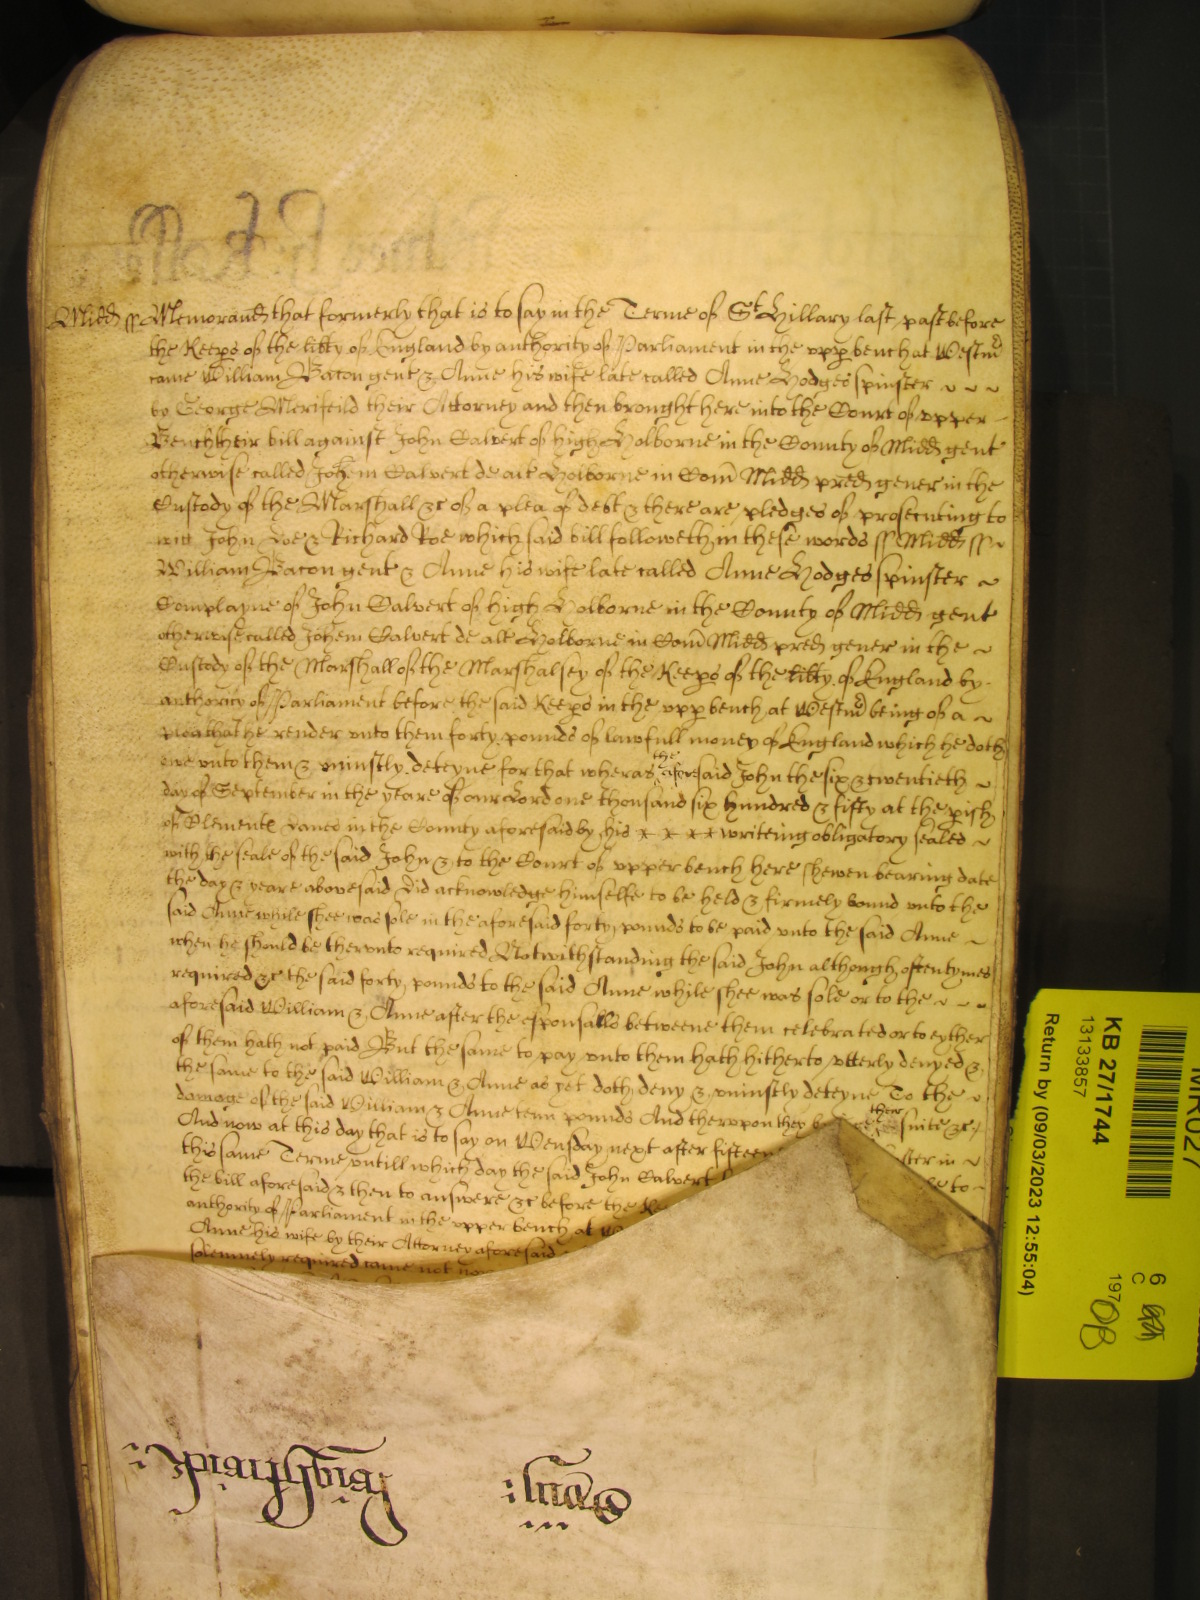 Midd ss Memorand that formerly that is to say in the Terme of St Hillary last past before
the Keeps of the libty of England by authority of Parliament in the upp bench at Westmr
came William Bacon gent & Anne his wife late called Anne Hodges spinster
by George Merifeild their Attorney and then brought here into the Court of upper
Bench their bill against John Calvert of high Holborne in the County of Midd gent
otherwise called Johem Calvert de alt Holborne in Com Midd pred gener in the
Custody of the Marshall &c of a plea of debt & there are pledges of prosecuting to
wit John Doe & Richard Roe which said bill followeth in these words ss Midd ss
William Bacon gent & Anne his wife late called Anne Hodges spinster
Complayne of John Calvert of high Holborne in the County of Midd gent
otherwise called Johem Calvert de alt Holborne in Com Midd pred gener in the
Custody of the Marshall of the Marshalsey of the Keeps of the libty of England by
authority of Parliament before the said Keeps in the upp bench at Westmr being of a
plea that he render unto them forty pounds of lawfull money of England which he doth
owe unto them & uniustly deteyne for that wheras the aforesaid John the six & twentieth
day of September in the yeare of our Lord one thousand six hundred & fifty at the pish
of Clement Danes in the County aforesaid by his x x x x writeing obligatory sealed
with the seale of the said John & to the Court of upper bench here shewen bearing date
the day & yeare abovesaid did acknowledge himselfe to be held & firmely bound unto the
said Anne while shee was sole in the aforesaid forty pounds to be paid unto the said Anne
when he should be therunto required Notwithstanding the said John although oftentymes
required &c the said forty pounds to the said Anne while shee was sole or to the
aforesaid William & Anne after the espousalls betweene them celebrated or to eyther
of them hath not paid But the same to pay unto them hath hitherto utterly denyed &
the same to the said William & Anne as yet doth deny & uniustly deteyne To the
damage of the said William & Anne tenn pounds And therupon they their suite &c
And now at this day that is to say on Wensday next after fifteen in
this same Terme untill which day the said John Calvert to
the bill aforesaid & then to answere &c before the
authority of Parliament in the upper bench at
Anne his wife by their Attorney aforesaid
solemnely required came not
KB 27/1744
13133857
Return by (09/03/2023 12:55:04)
6
C
197